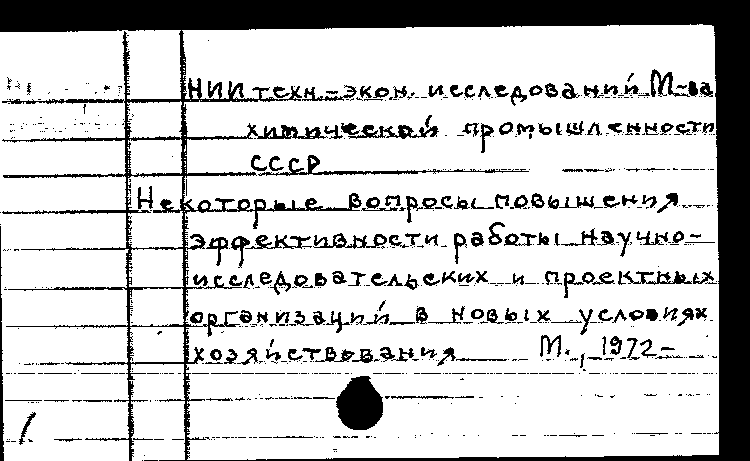 НИИ техн.-экон. исследований М-ва
химической промышленности
СССР
Некоторые вопросы повышения
эффективности работы научно-
исследовательских и проектных
организаций в новых условиях
хозяйствования М., 1972-